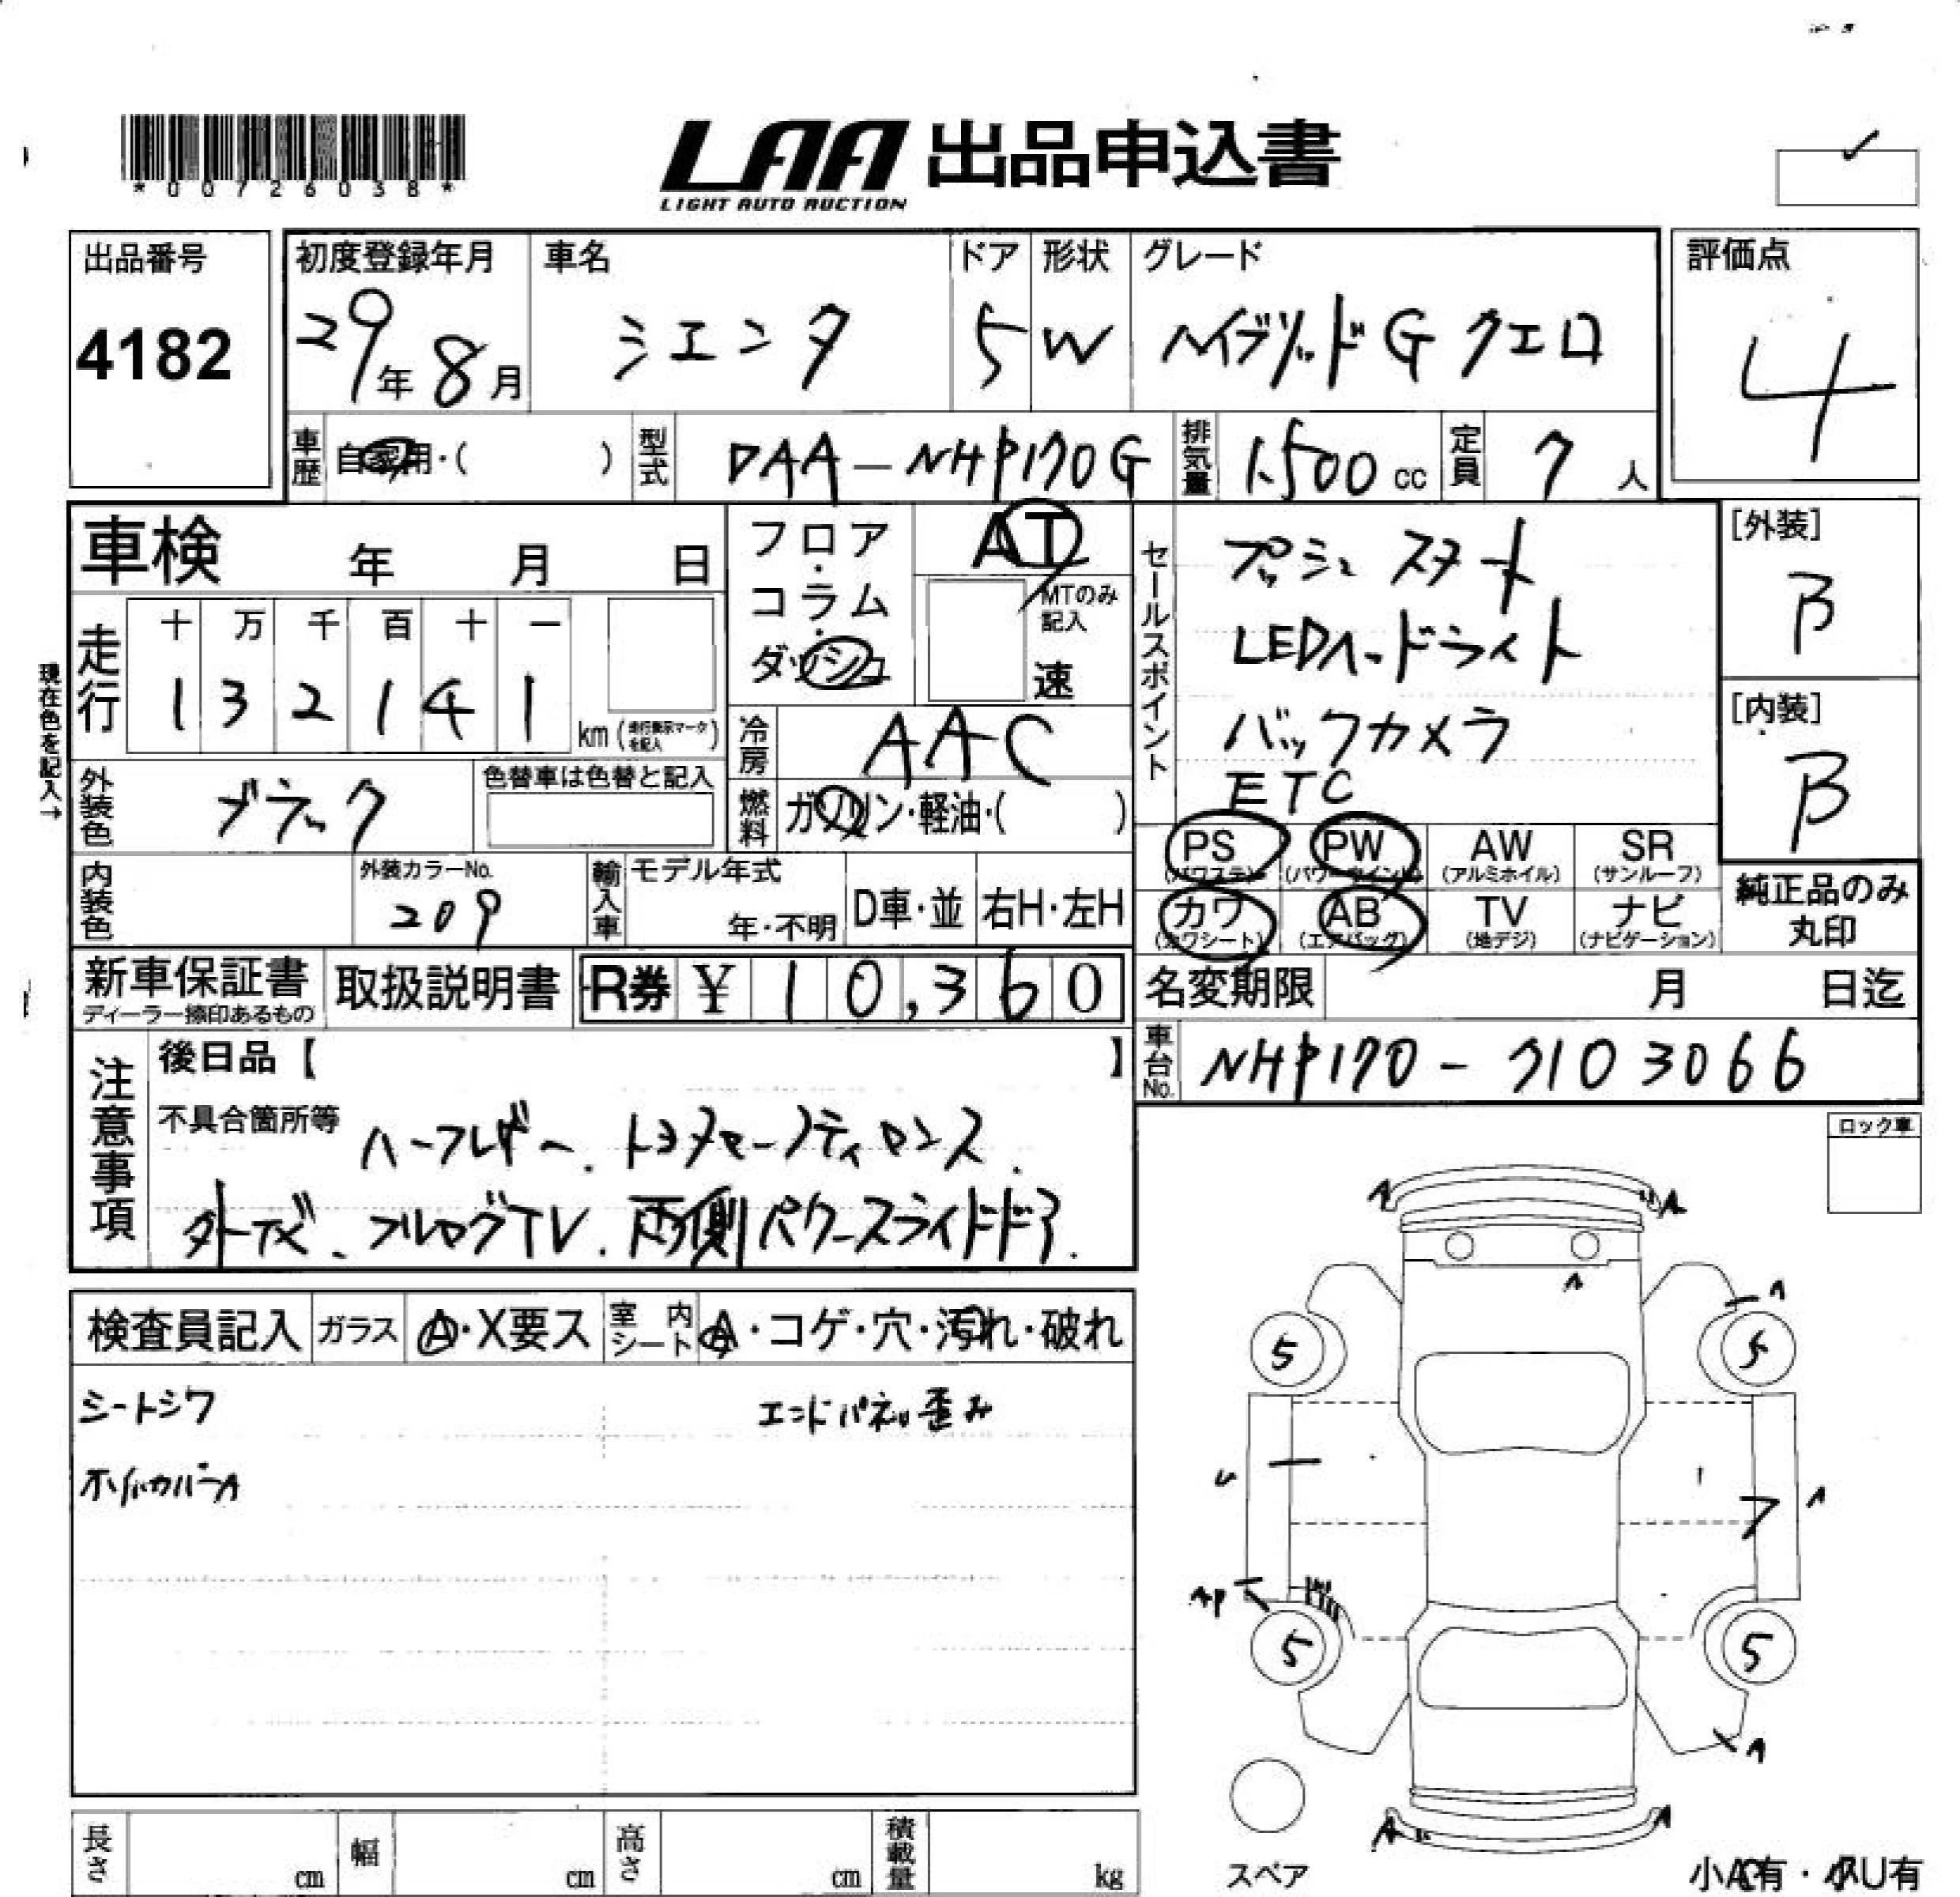 *00726038*
LAA 出品申込書
LIGHT AUTO AUCTION
出品番号
4182
初度登録年月
29年8月
車名
シエンタ
ドア
5
形状
W
グレード
ハイブリッドG クエロ
評価点
4
車歴
自家用・( )
型式
DAA-NHP170G
排気量
1500cc
定員
7人
車検 年 月 日
現在色を記入→
走行
十 万 千 百 十 一
1 3 2 1 4 1
km(走行表示マークを記入)
フロア・コラム・ダッシュ
AT
MTのみ記入
速
冷房
AAC
燃料
ガソリン・軽油・( )
セールスポイント
プッシュスタート
LEDヘッドライト
バックカメラ
ETC
[外装]
B
[内装]
B
外装色
ブラック
色替車は色替と記入
内装色
外装カラーNo.
209
輸入車
モデル年式
年・不明
D車・並
右H・左H
PS (パワステ)
PW (パワーウインドー)
AW (アルミホイル)
SR (サンルーフ)
カワ (カワシート)
AB (エアバッグ)
TV (地デジ)
ナビ (ナビゲーション)
純正品のみ丸印
新車保証書
ディーラー捺印あるもの
取扱説明書
R券 ¥10,360
名変期限 月 日迄
車台No.
NHP170-7103066
注意事項
後日品【 】
不具合箇所等
ハーフレザー、トヨタセーフティセンス、
外ナビ、フルセグTV、両側パワースライドドア.
ロック車
検査員記入
ガラス
A・X要ス
室内シート
A・コゲ・穴・汚れ・破れ
シートシワ
エンドパネル歪み
A
A
A
A
5
5
U
A
AP
5
5
A
A
A
スペア
長さ cm
幅 cm
高さ cm
積載量 kg
小AC有・小U有